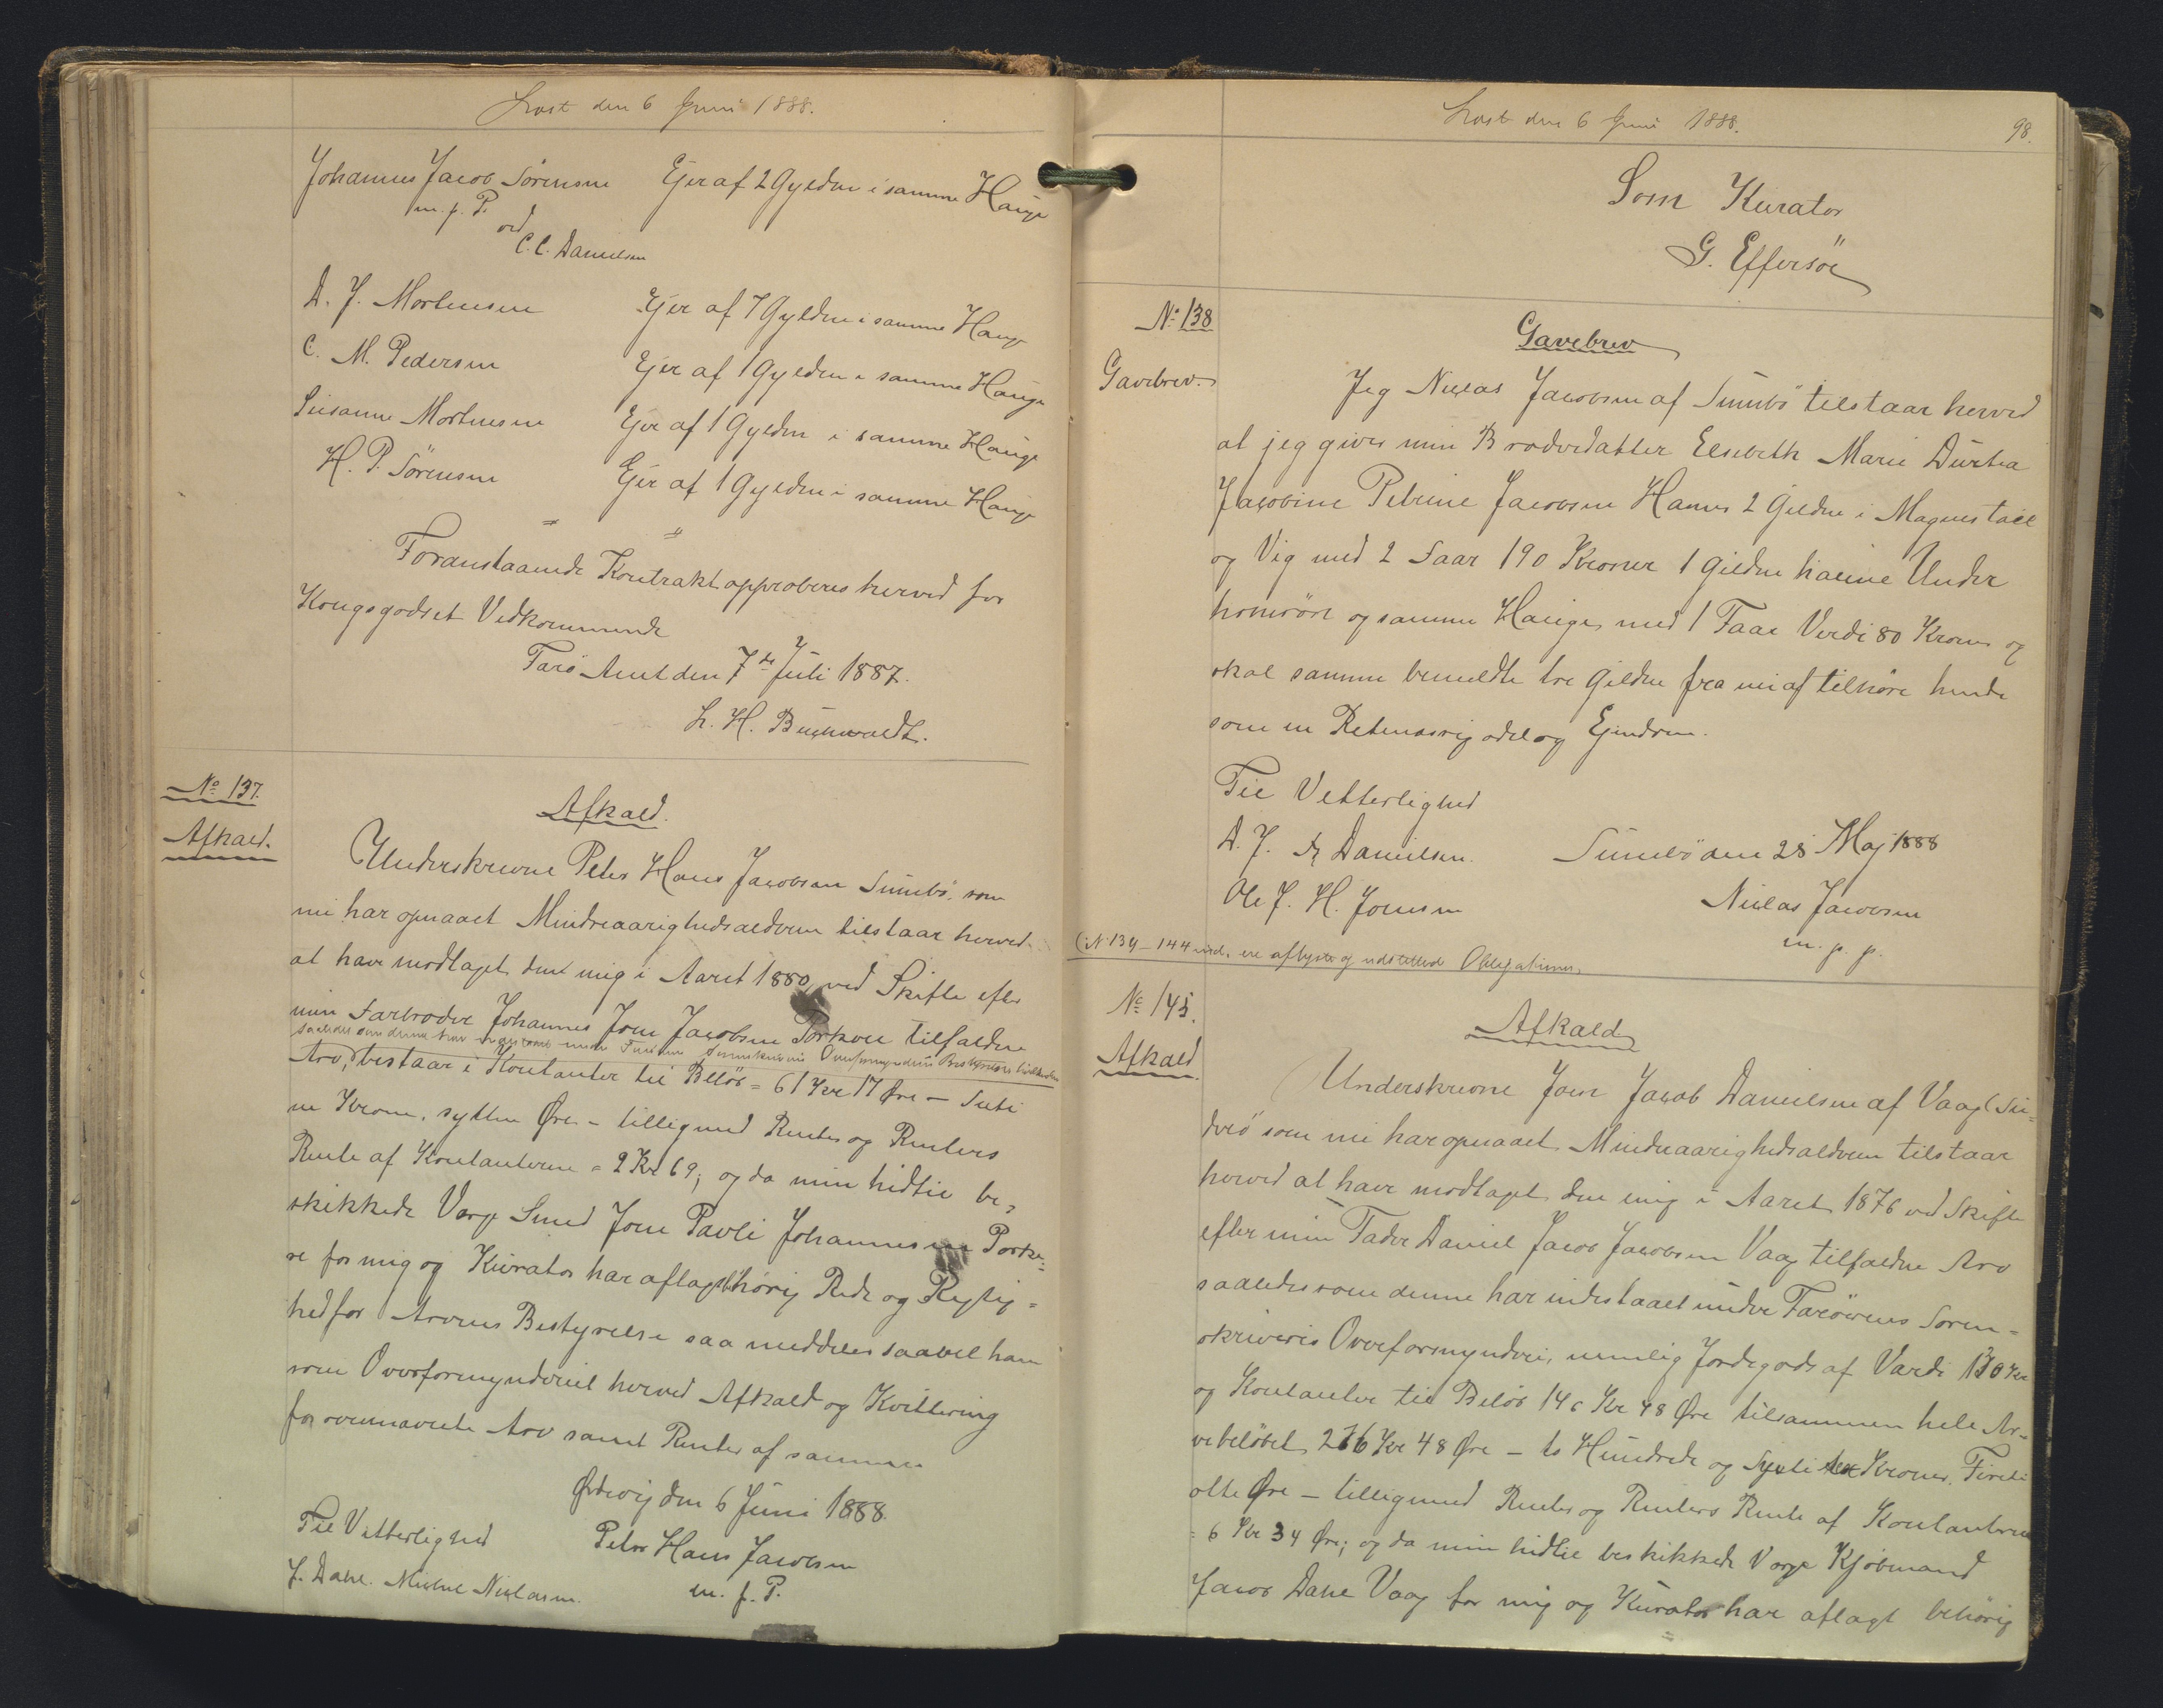 Læst den 6 Juni 1888.
Johannes Jacob Sörensen Ejer af 2 Gylden i samme Hauge
m. f. P.
ved
C. C. Danielsen
D. J. Mortensen Ejer af 7 Gylden i samme Hauge
C. M. Pedersen Ejer af 1 Gylden i samme Hauge
Susanne Mortensen Ejer af 1 Gylden i samme Hauge
H. P. Sörensen Ejer af 1 Gylden i samme Hauge
Foranstaaende Kontrakt approberes herved for
Kongsgodset Vedkommende
Færö Amt den 7de Juli 1887.
L. H. Buchwaldt.
No 137.
Afkald.
Afkald.
Underskrevne Peter Hans Jacobsen Sumbö, som
nu har opnaaet Mindreaarighedsalderen tilstaar herved
at have modtaget den mig i Aaret 1880, ved Skifte efter
min Farbroder Johannes Joen Jacobsen Porkere tilfaldne
saaledes som denne har indestaaet under Færöernes Sorenskriveris Overformynderis Bestyrelse
Arv, bestaar i Kontanter til Belöb = 61 Kr 17 Øre — Seksti
en Krone, sytten Øre - tilligemed Renter og Renters
Rente af Kontanterne = 2 Kr 69; og da min hidtil be-
skikkede Værge Smed Joen Pavli Johannesen Porke-
re for mig og Kurator har aflagt behörig Rede og Rigtig-
hed for Arvens Bestyrelse saa meddeles saavel ham
som Overformynderiet herved Afkald og Kvittering
for ovennævnte Arv samt Renter af samme
Ördevig den 6 Juni 1888.
Til Vitterlighed Peter Hans Jacobsen
J. Dahl. Michel Niclasen. m. f. P.
Læst den 6 Juni 1888. 98.
Som Kurator
G. Effersöe
No 138
Gavebrev.
Gavebrev
Jeg Niclas Jacobsen af Sumbö tilstaar herved
at jeg giver min Broderdatter Elsebeth Marie Durtea
Jacobine Petrine Jacobsen Hamre 2 Gylden i
og Vig med 2 Faar 190 Kroner 1 Gilden Under
og samme Hauge med 1 Faar Verdi 80 Kroner og
skal samme bemeldte tre Gilden fra nu af tilhöre hende
som en Retmæssig odel og Ejendom.
Til Vetterlighed
D. J. Danielsen. Sumbö den 28 Maj 1888
Ole J. H. Joensen Niclas Jacobsen
m. p. p.
(No 139 - 144 incl. ere aflyste og udslettede Obligationer.
No 145.
Afkald.
Afkald
Underskrevne Joen Jacob Danielsen af Vaag Su-
derö som nu har opnaaet Mindreaarighedsalderen tilstaar
herved at have modtaget den mig i Aaret 1876 ved Skifte
efter min Fader Daniel Jacob Jacobsen Vaag tilfaldne Arv
saaledes som denne har indestaaet under Færöernes Soren-
skriveris Overformynderi, nemlig Jordegods af Værdi 130 Kr
og Kontanter til Belöb 146 Kr 48 Øre tilsammen hele Ar-
vebelöbet 276 Kr 48 Øre - to Hundrede og Kroner, Firti
otte Øre - tilligemed Renter og Renters Rente af Kontanterne
= 6 Kr 34 Øre; og da min hidtil beskikkede Værge Kjöbmand
Jacob Dahl Vaag for mig og Kurator har aflagt behörig